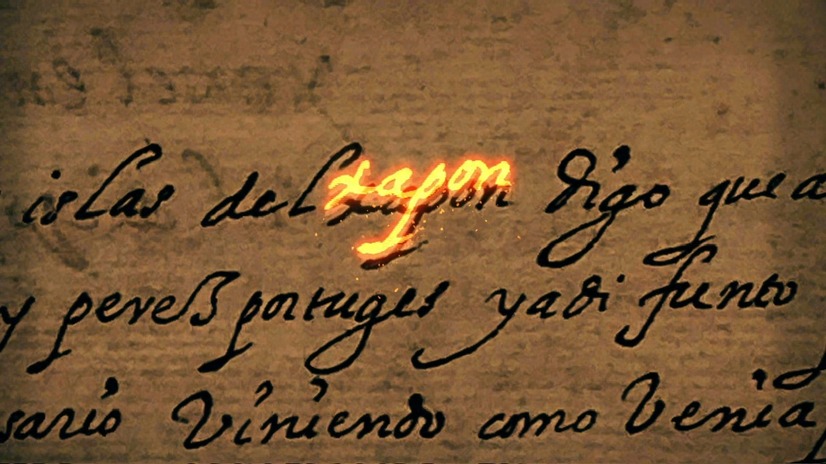 islas del xapon digo que a
y pereß portuges ya di funto
sario Viniendo como Venia